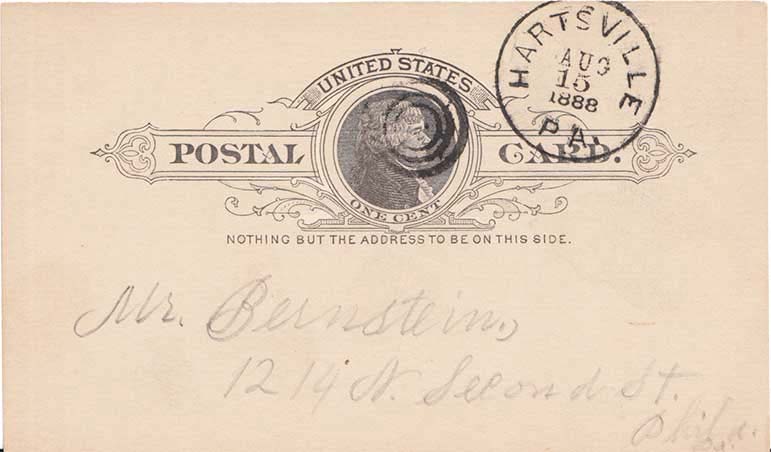 UNITED STATES
POSTAL CARD.
ONE CENT
NOTHING BUT THE ADDRESS TO BE ON THIS SIDE.
HARTSVILLE
AUG
15
1888
PA.
Mr. Bernstein,
1214 N. Second St.
Phila.
Pa.